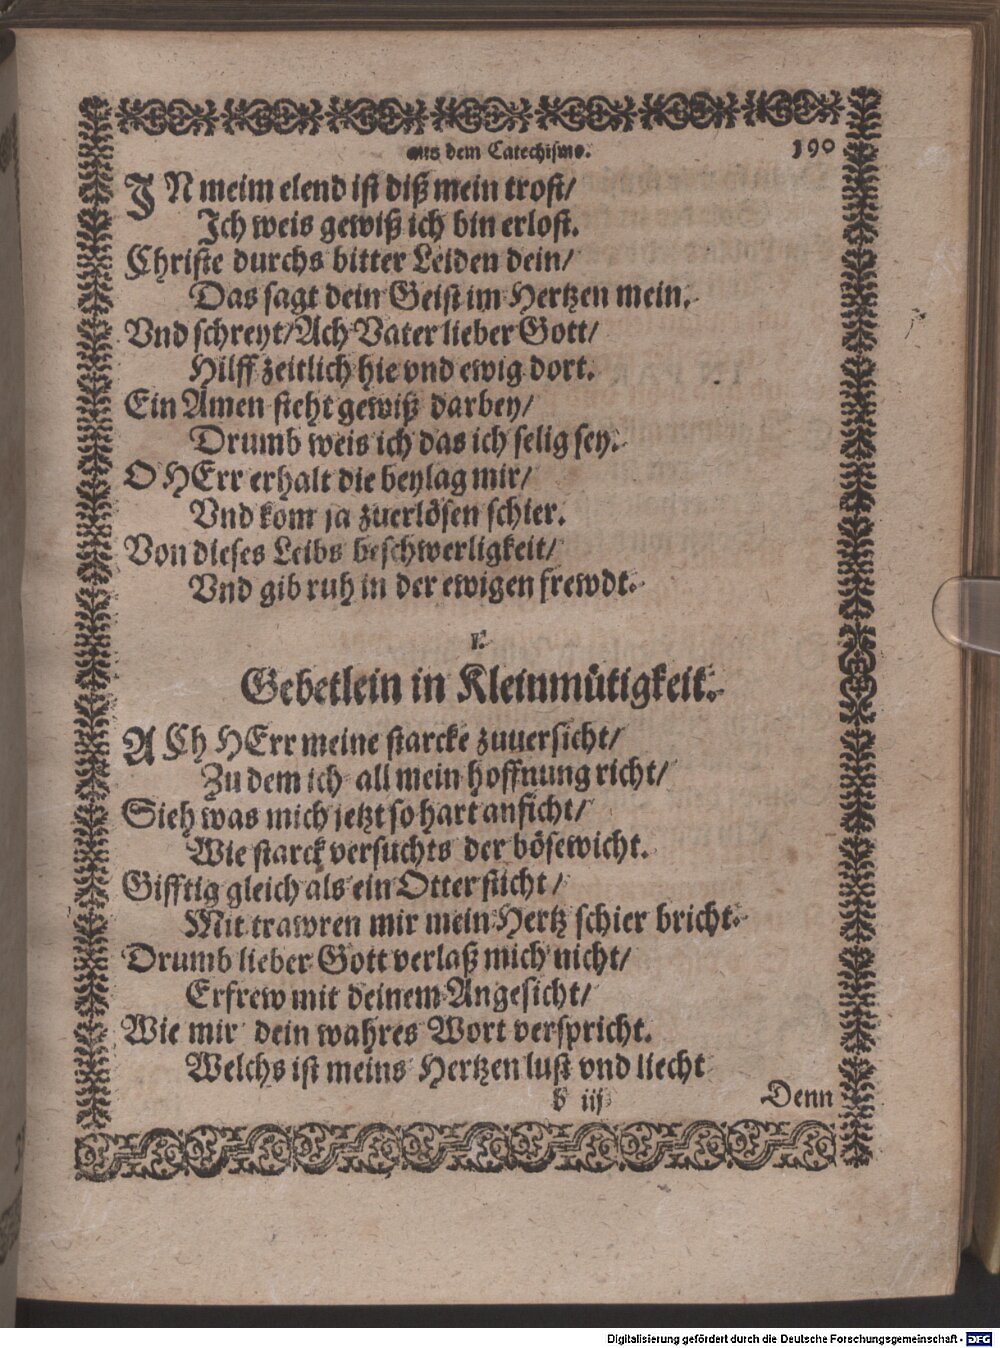 aus dem Catechismo. 190
IN meim elend ist diß mein trost/
Ich weis gewiß ich bin erlost.
Christe durchs bitter Leiden dein/
Das sagt dein Geist im Hertzen mein.
Vnd schreyt/Ach Vater lieber Gott/
Hilff zeitlich hie vnd ewig dort.
Ein Amen steht gewiß darbey/
Drumb weis ich das ich selig sey.
O HErr erhalt die beylag mir/
Vnd kom ja zuerlösen schier.
Von dieses Leibs beschwerligkeit/
Vnd gib ruh in der ewigen frewdt.
Gebetlein in Kleinmütigkeit.
ACh HErr meine starcke zuuersicht/
Zu dem ich all mein hoffnung richt/
Sieh was mich jetzt so hart anficht/
Wie starck versuchts der bösewicht.
Gifftig gleich als ein Otter sticht/
Mit trawren mir mein Hertz schier bricht.
Drumb lieber Gott verlaß mich nicht/
Erfrew mit deinem Angesicht/
Wie mir dein wahres Wort verspricht.
Welchs ist meins Hertzen lust vnd liecht
b iij Denn
Digitalisierung gefördert durch die Deutsche Forschungsgemeinschaft - DFG